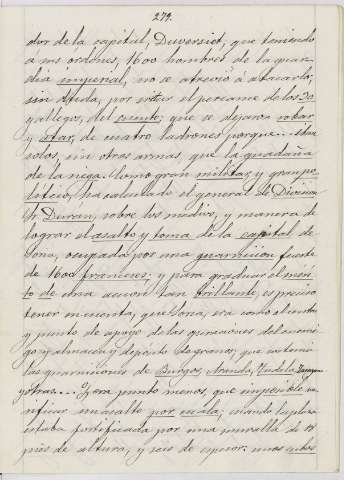 279.
dor de la capital, Duversiot, que teniendo
á sus ordenes, 1600 hombres de la guar-
dia imperial, no se atrevió á atacarla;
sin duda, por evitar el percame de los 30
gallegos, del cuento; que se dejaron robar
y atar, de cuatro ladrones porque... iban
solos, sin otras armas, que la guadaña
de la siega. Como gran militar, y gran po-
litico, ha calculado el general de Division
Sr. Duran, sobre los medios, y manera de
lograr el asalto y toma de la capital de
Soria, ocupada por una guarnicion fuerte
de 1600 franceses; y para graduar el meri-
to de una accion tan brillante, es preciso
tener en cuenta, que Soria, era como el centro
y punto de apoyo de las operaciones del enemi-
go y almacen y depósito de granos; que sostenia
las guarniciones de Burgos, Aranda, Tudela, Zaragoza
y otras.... Y era punto menos, que imposible ve-
rificar un asalto por escala; cuando la plaza
estaba fortificada por una muralla de 18
pies de altura, y seis de espesor: unos